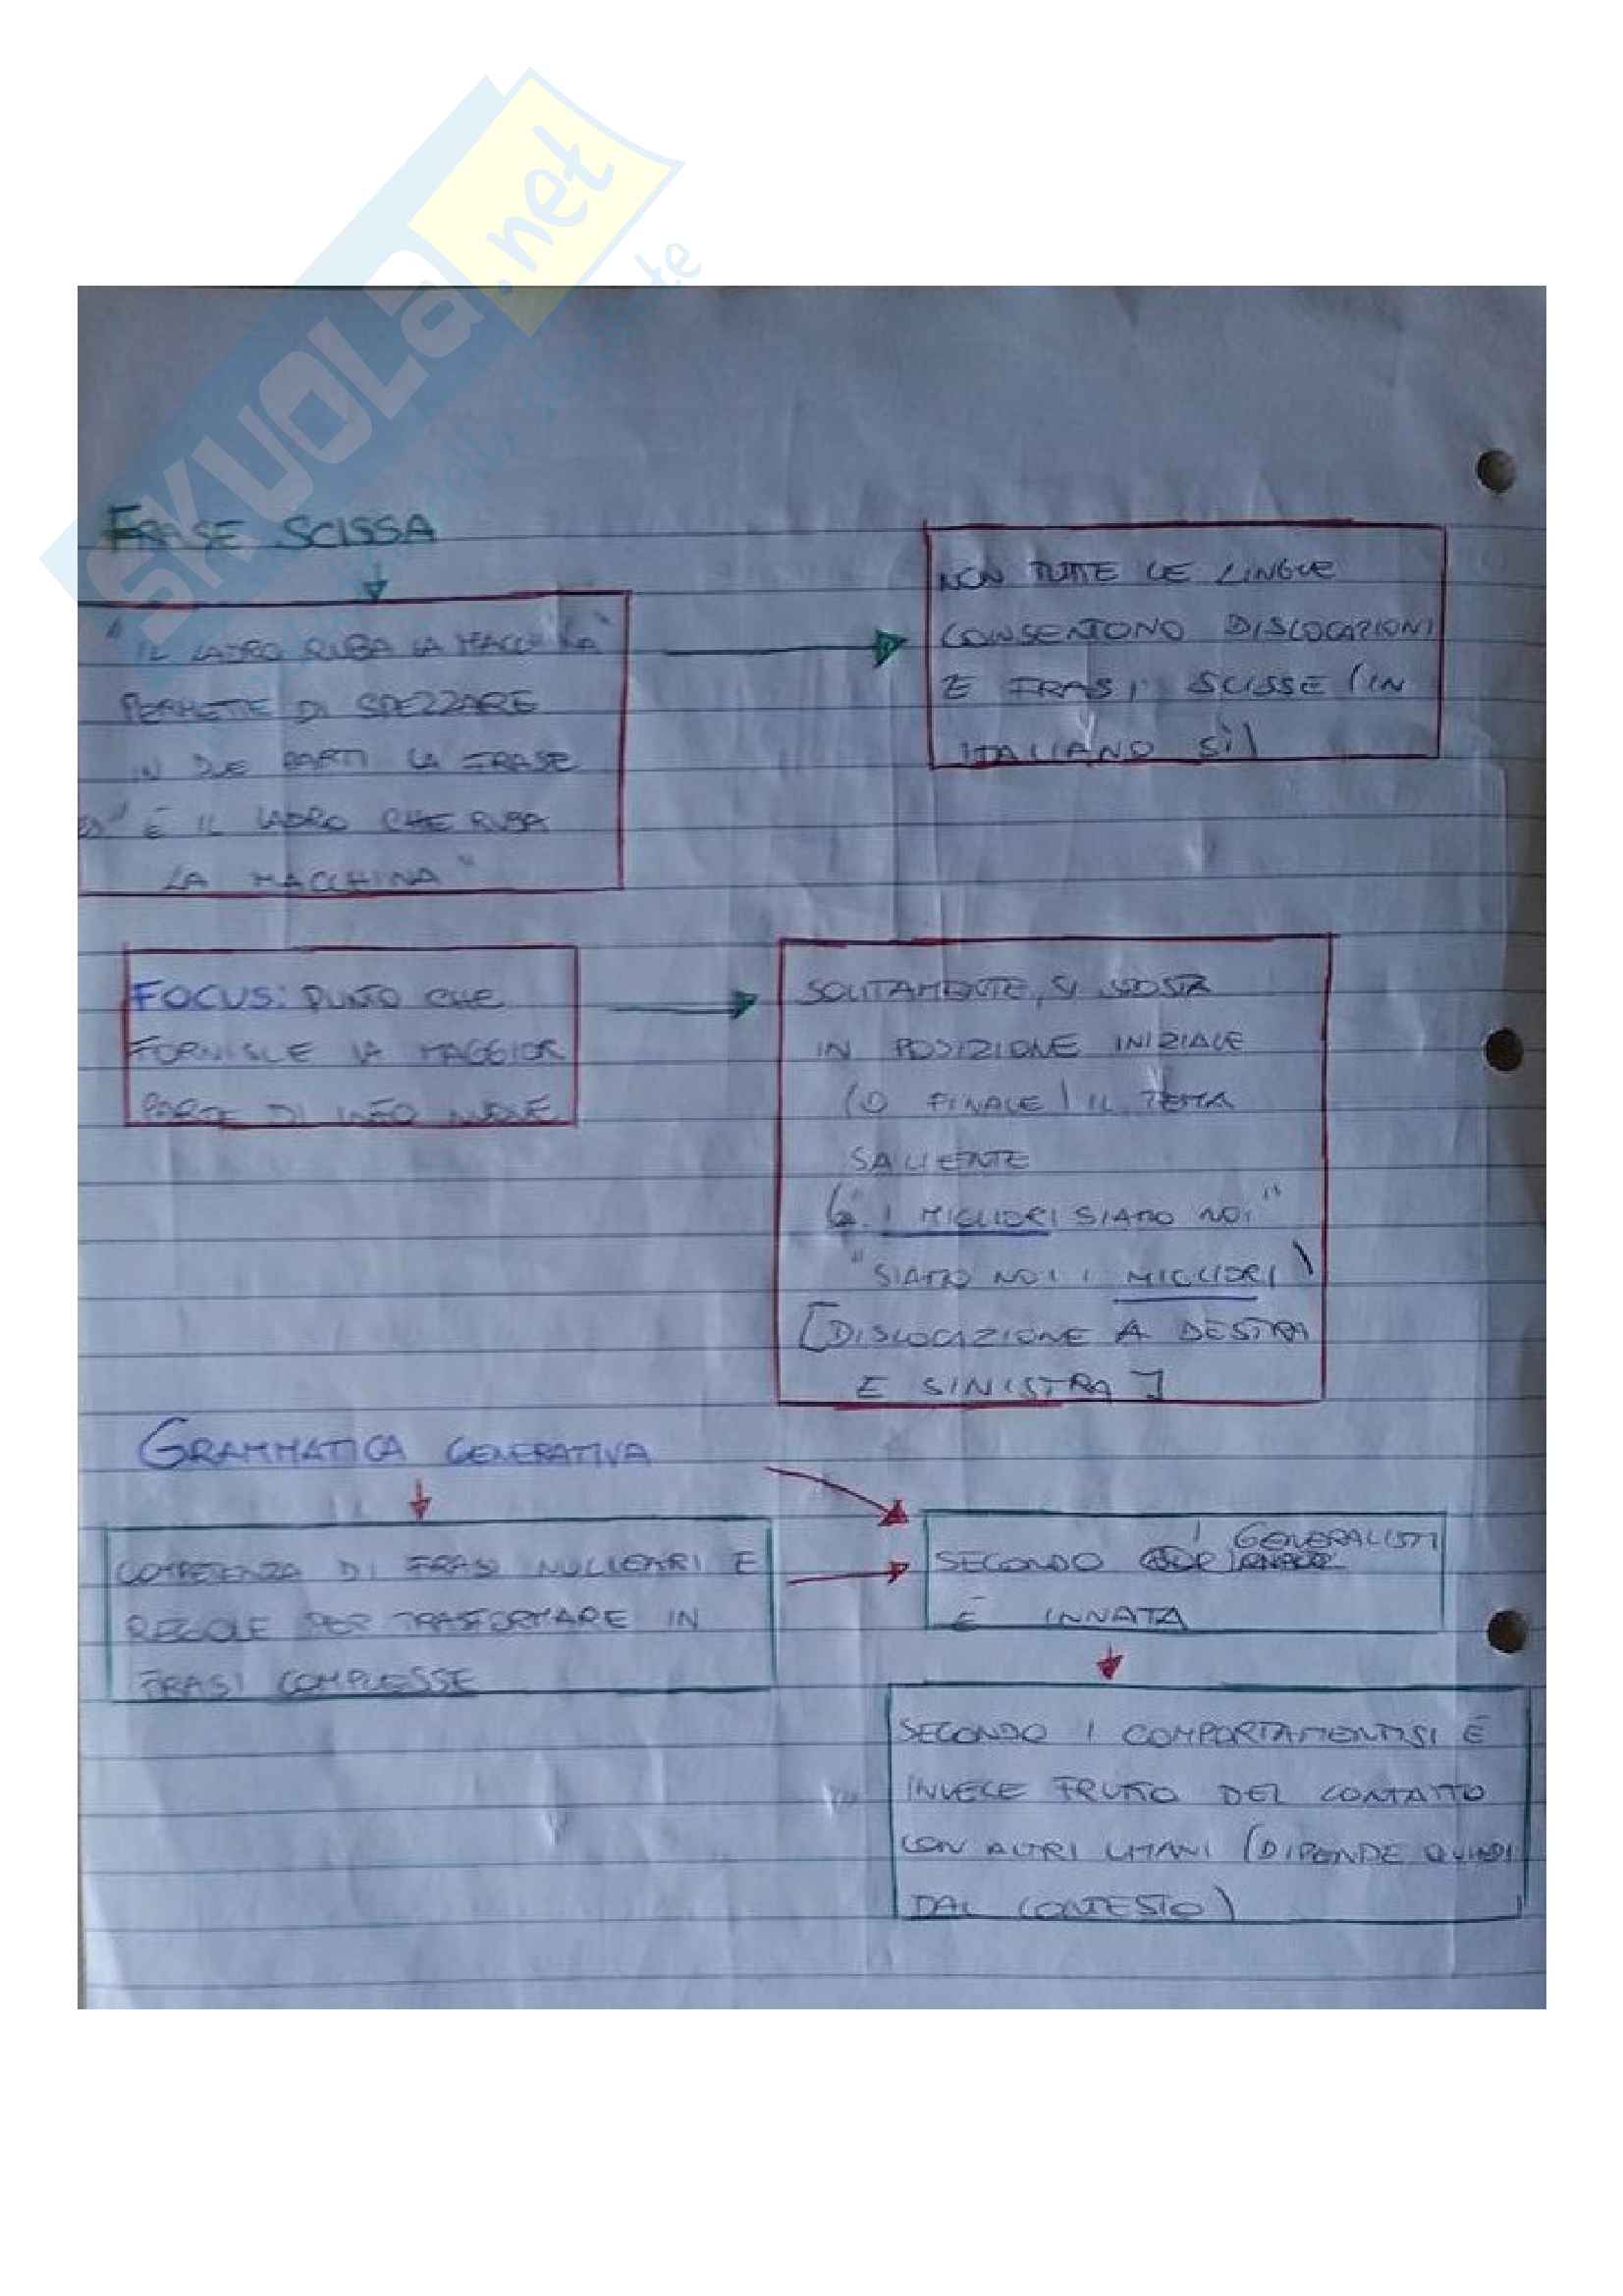 SKUOLA.net
FRASE SCISSA
"IL LADRO RUBA LA MACCHINA"
PERMETTE DI SPEZZARE
IN DUE PARTI LA FRASE
" È IL LADRO CHE RUBA
LA MACCHINA"
NON TUTTE LE LINGUE
CONSENTONO DISLOCAZIONI
E FRASI SCISSE (IN
ITALIANO SÌ)
FOCUS: PUNTO CHE
FORNISCE LA MAGGIOR
PARTE DI INFO NUOVE
SOLITAMENTE, SI SPOSTA
IN POSIZIONE INIZIALE
(O FINALE) IL TEMA
SALIENTE
"I MIGLIORI SIAMO NOI"
"SIAMO NOI I MIGLIORI"
[DISLOCAZIONE A DESTRA
E SINISTRA]
GRAMMATICA GENERATIVA
COMPETENZA DI FRASI NUCLEARI E
REGOLE PER TRASFORMARE IN
FRASI COMPLESSE
I GENERALISTI
SECONDO
È INNATA
SECONDO I COMPORTAMENTISI È
INVECE FRUTTO DEL CONTATTO
CON ALTRI UMANI (DIPENDE QUINDI
DAL CONTESTO)